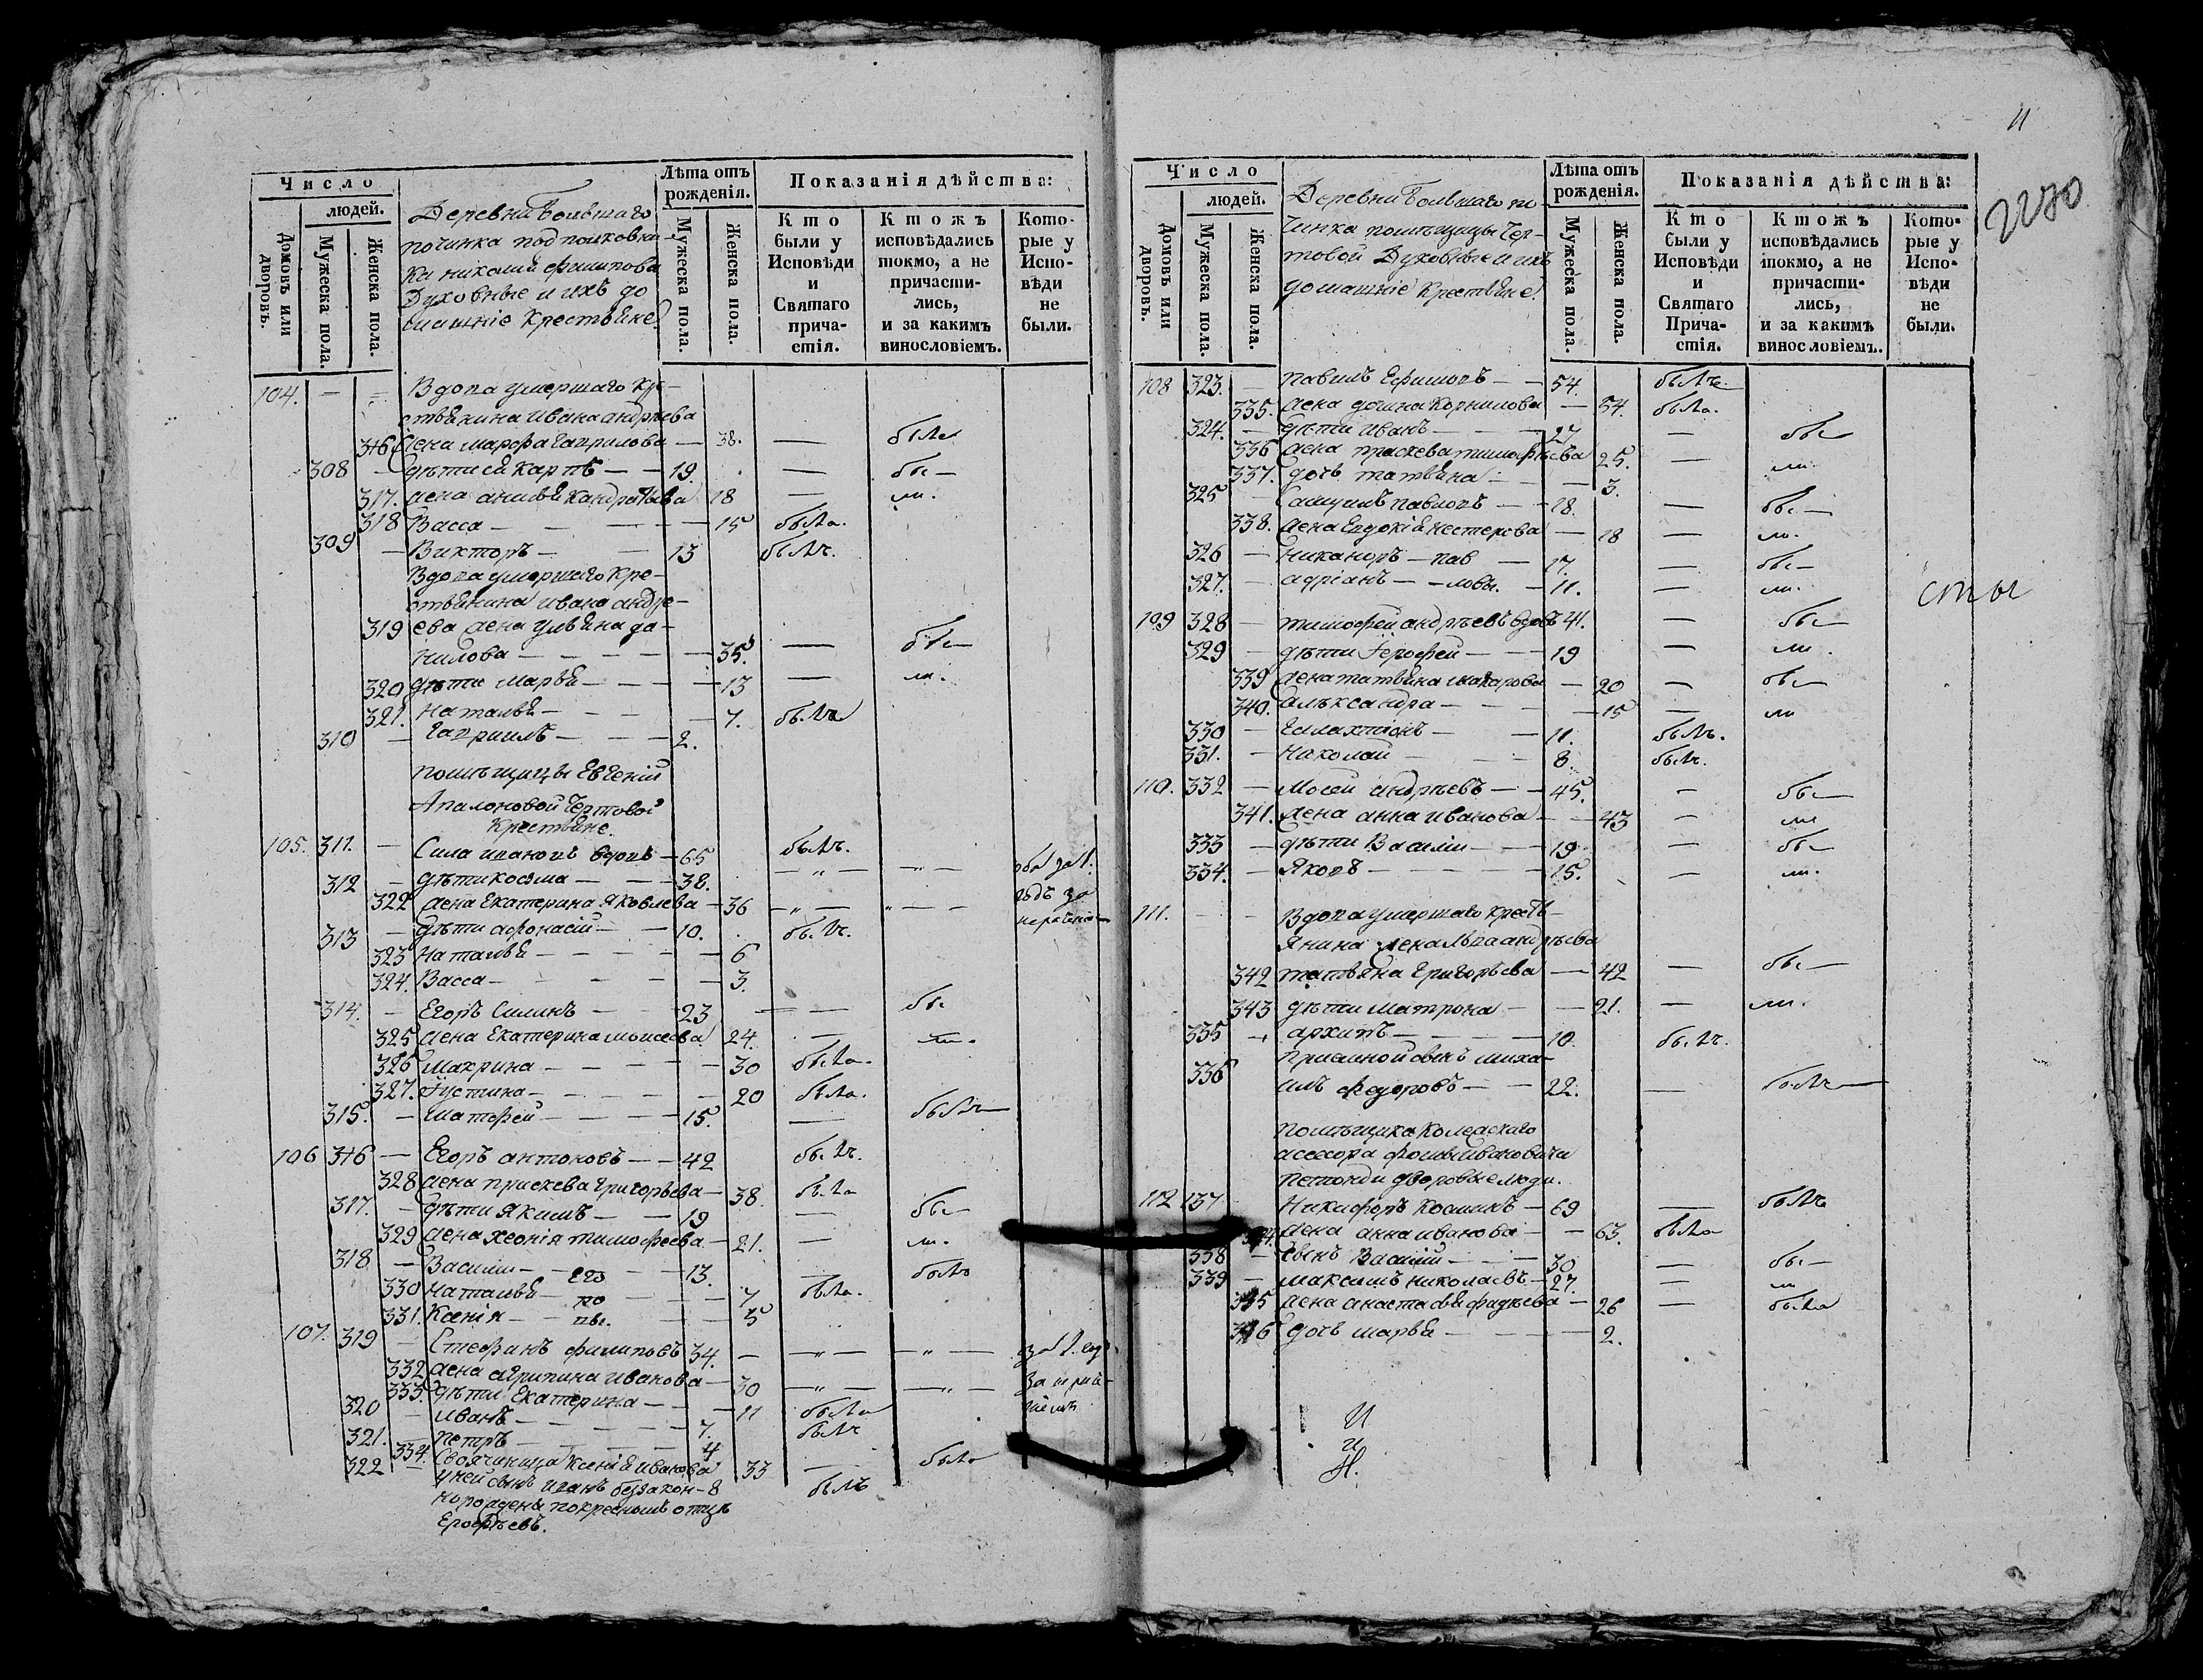 Число
людей.
Домовъ или дворовъ.
Мужеска пола.
Женска пола.
Деревни Большаго
починка подполковни-
ка николая филипова
Духовные и ихъ до
машніе Крестьяне.
Лѣта отъ рожденія.
Мужеска пола.
Женска пола.
Показанія дѣйства:
Кто были у Исповѣди и Святаго причастія.
Ктожъ исповѣдались токмо, а не причастились, и за какимъ винословіемъ.
Которые у Исповѣди не были.
104. — — Вдова умершаго кре-
стьянина ивана андреева
316 жена марфа гаврилова — 38. — была
308 — дѣти ея карпъ — — 19. — бы —
317. жена анисья кандратьева 18 — ли.
318 Васса — — — 15 была.
309 — Викторъ — — 13 былъ.
Вдова умершаго кре-
стьянина ивана андре-
319 ева жена ульяна да-
нилова — — — 35. — бы —
320 дѣти марья — — — 13 — ли.
321. наталья — — — 7. были
310 — гавриилъ — — 2.
помѣщицы Евгеніи
Апалоновой Чертовой
Крестьяне.
105. 311. — Сила ивановъ вдовъ — 65 былъ.
312 — дѣти косма — — 38. — „ — — „ —
322 жена Екатерина Яковлева — 36 — „ — „ — —
313 — дѣти афонасій — — 10. былъ.
323 наталья — — — 6
324. Васса — — — 3.
314. — Егоръ Силинъ — — 23 — — бы
325 жена Екатерина моисеева 24. — ли.
326 макрина — — — 30 была.
327. Густина — — — 20 была.
315. — матфей — — — 15. — былъ —
106 316 — Егоръ антоновъ — — 42 былъ.
328 жена прискева григорьева — 38. была
317. — дѣти якимъ — — 19 — бы —
329 жена хеонія тимофеева — 21. — ли.
318 — Василій — Его 13. — былъ
330 наталья — ро — 7 была.
331. Ксенія — вы. — 5
107. 319 — Стефанъ филиповъ 34. — — „ — — „ —
332 жена агрипина иванова — 30 — „ — — „ —
333. дѣти Екатерина — — 11 была
320 — иванъ — — — 7. былъ
321. — петръ — — — 4
334. Своячиница ксенія иванова 33 — была
322 — у ней сынъ иванъ беззакон- 8 былъ
норожденъ по кресному отцу
Ерофѣевъ.
11
Число
людей.
Домовъ или дворовъ.
Мужеска пола.
Женска пола.
Деревни Большаго по-
чинка помѣщицы Чер-
товой Духовные и ихъ
домашніе Крестьяне.
Лѣта отъ рожденія.
Мужеска пола.
Женска пола.
Показанія дѣйства:
Кто были у Исповѣди и Святаго Причастія.
Ктожъ исповѣдались токмо, а не причастились, и за какимъ винословіемъ.
Которые у Исповѣди не были.
108 323. — павилъ Ефимовъ — — 54. былъ.
335. жена домна корнилова — 54. была.
324. — дѣти иванъ — — 27 — бы
336 жена праскева тимофѣева 25. — ли.
337. дочь татьяна — — 3.
325 — Самуилъ павловъ — 18. — бы —
338. жена Евдокія нестерова — 18 — ли.
326 — никаноръ — пав — 17. — бы —
327. — адріанъ — — ловы. — 11. — ли.
109 328 — тимофей андреевъ вдовъ 41. — бы —
329 — дѣти Ерофей — — 19 — ли.
339 жена татьяна макарова — 20 — бы —
340. Александра — — — 15 — ли
330 — Галахтіонъ — — 11. былъ.
331. — николай — — 8. былъ.
110. 332 — Мосей андреевъ — — 45. — бы —
341. жена анна иванова — — 43 — ли
333 — дѣти Василій — — 19 — бы —
334. — Яковъ — — — 15. — ли.
111. — — Вдова умершаго кресть-
янина жена льва андреева
342 татьяна григорьева — 42 — бы —
343 дѣти матрона — — 21. — ли.
335 — архипъ — — — 10. былъ.
Приемной сынъ миха-
336 илъ федоровъ — — 22. — былъ —
помѣщика Колежскаго
асесора
дворовые люди.
112 137 Никифоръ Козминъ — 69 — былъ
344. жена анна иванова — — 63. была
338 — сынъ Василій — — 30 — бы —
339 — максимъ николаевъ — 27. — ли
345 жена анастасья фадѣева — 26 — была
346 дочь марья — — — 2.
сты